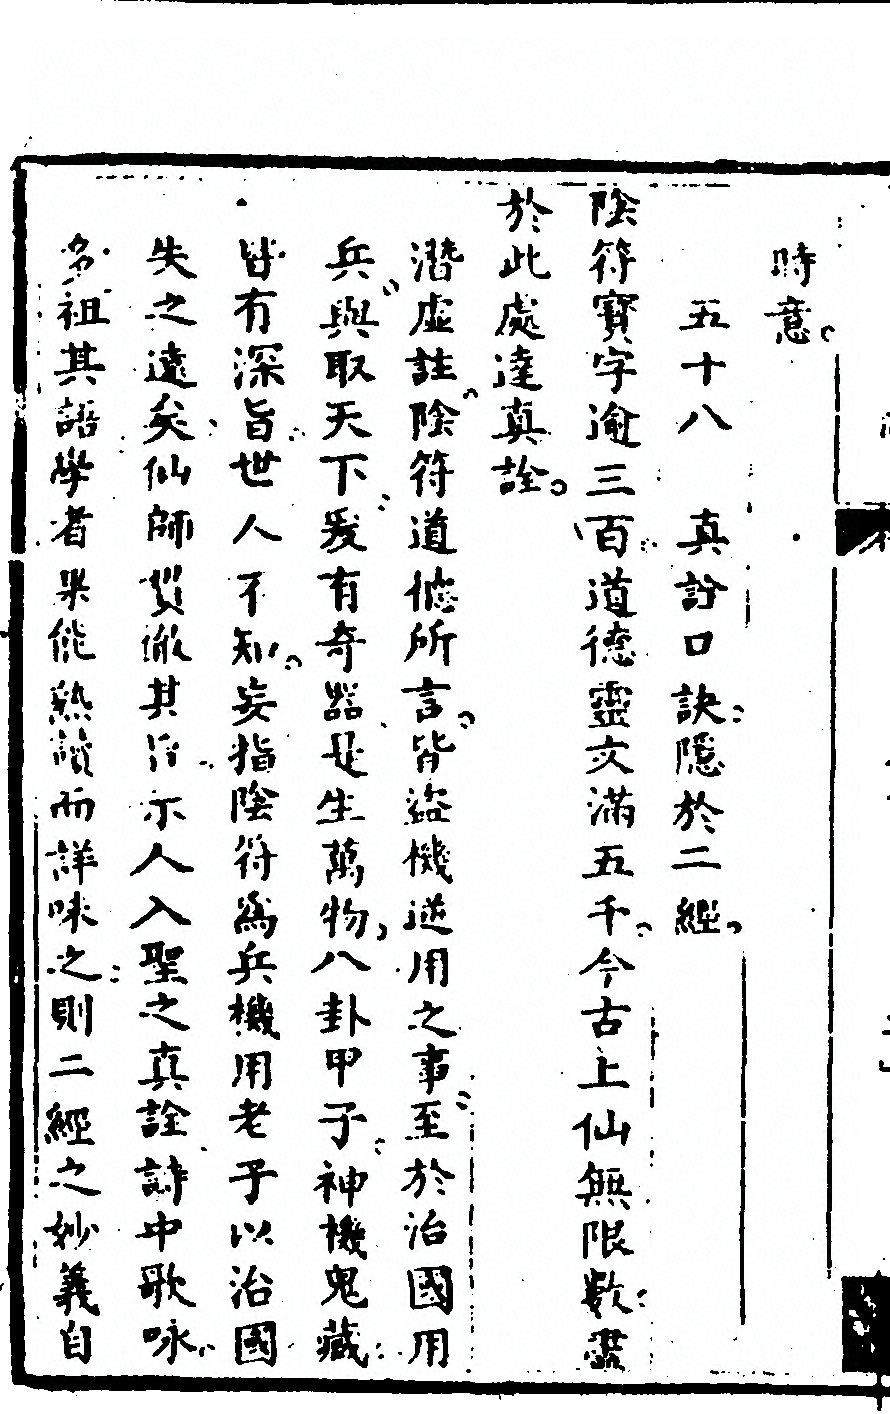 時意
五十八 真詮口訣隱於二經
陰符寶字逾三百道德靈文滿五千今古上仙無限數盡
於此處達真詮
潛虛註陰符道德所言皆盜機逆用之事至於治國用
兵與取天下爰有奇器是生萬物八卦甲子神機鬼藏
皆有深旨世人不知妄指陰符為兵機用老子以治國
失之遠矣仙師質徹其旨示人入聖之真詮詩中歌咏
多祖其語學者果能熟讀而詳味之則二經之妙義自